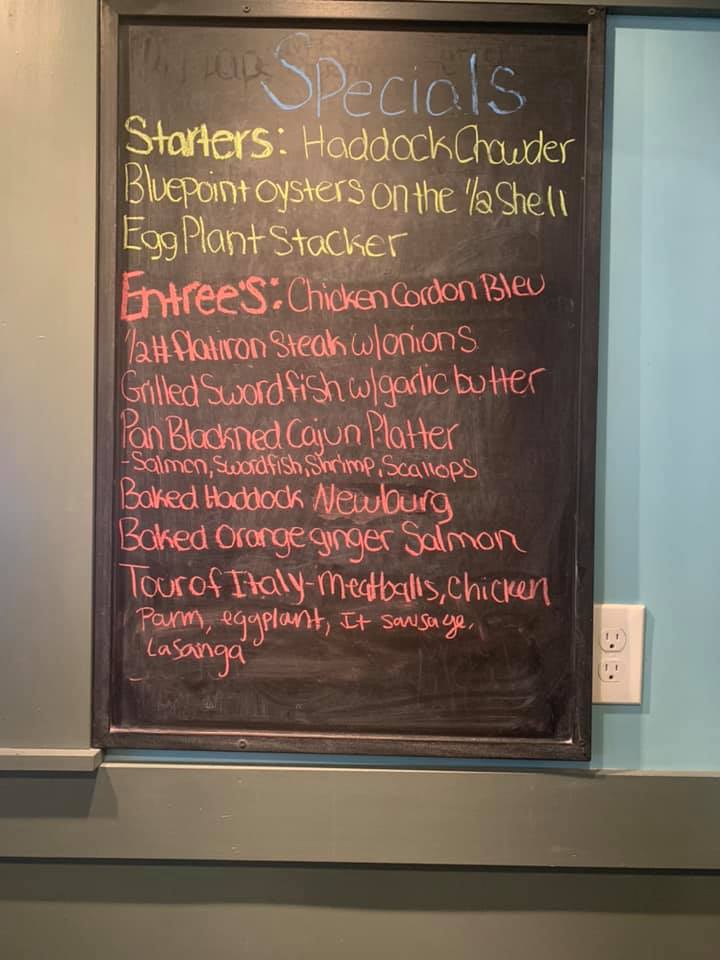 Specials
Starters: Haddock Chowder
Bluepoint oysters on the 1/2 Shell
Egg Plant Stacker
Entree's: Chicken Cordon Bleu
1/2# flatiron Steak w/onions
Grilled Swordfish w/garlic butter
Pan Blackned Cajun Platter
-Salmon, Swordfish, Shrimp, Scallops
Baked Haddock Newburg
Baked Orange ginger Salmon
Tour of Italy-Meatballs, Chicken
Parm, eggplant, It sausage,
Lasanga